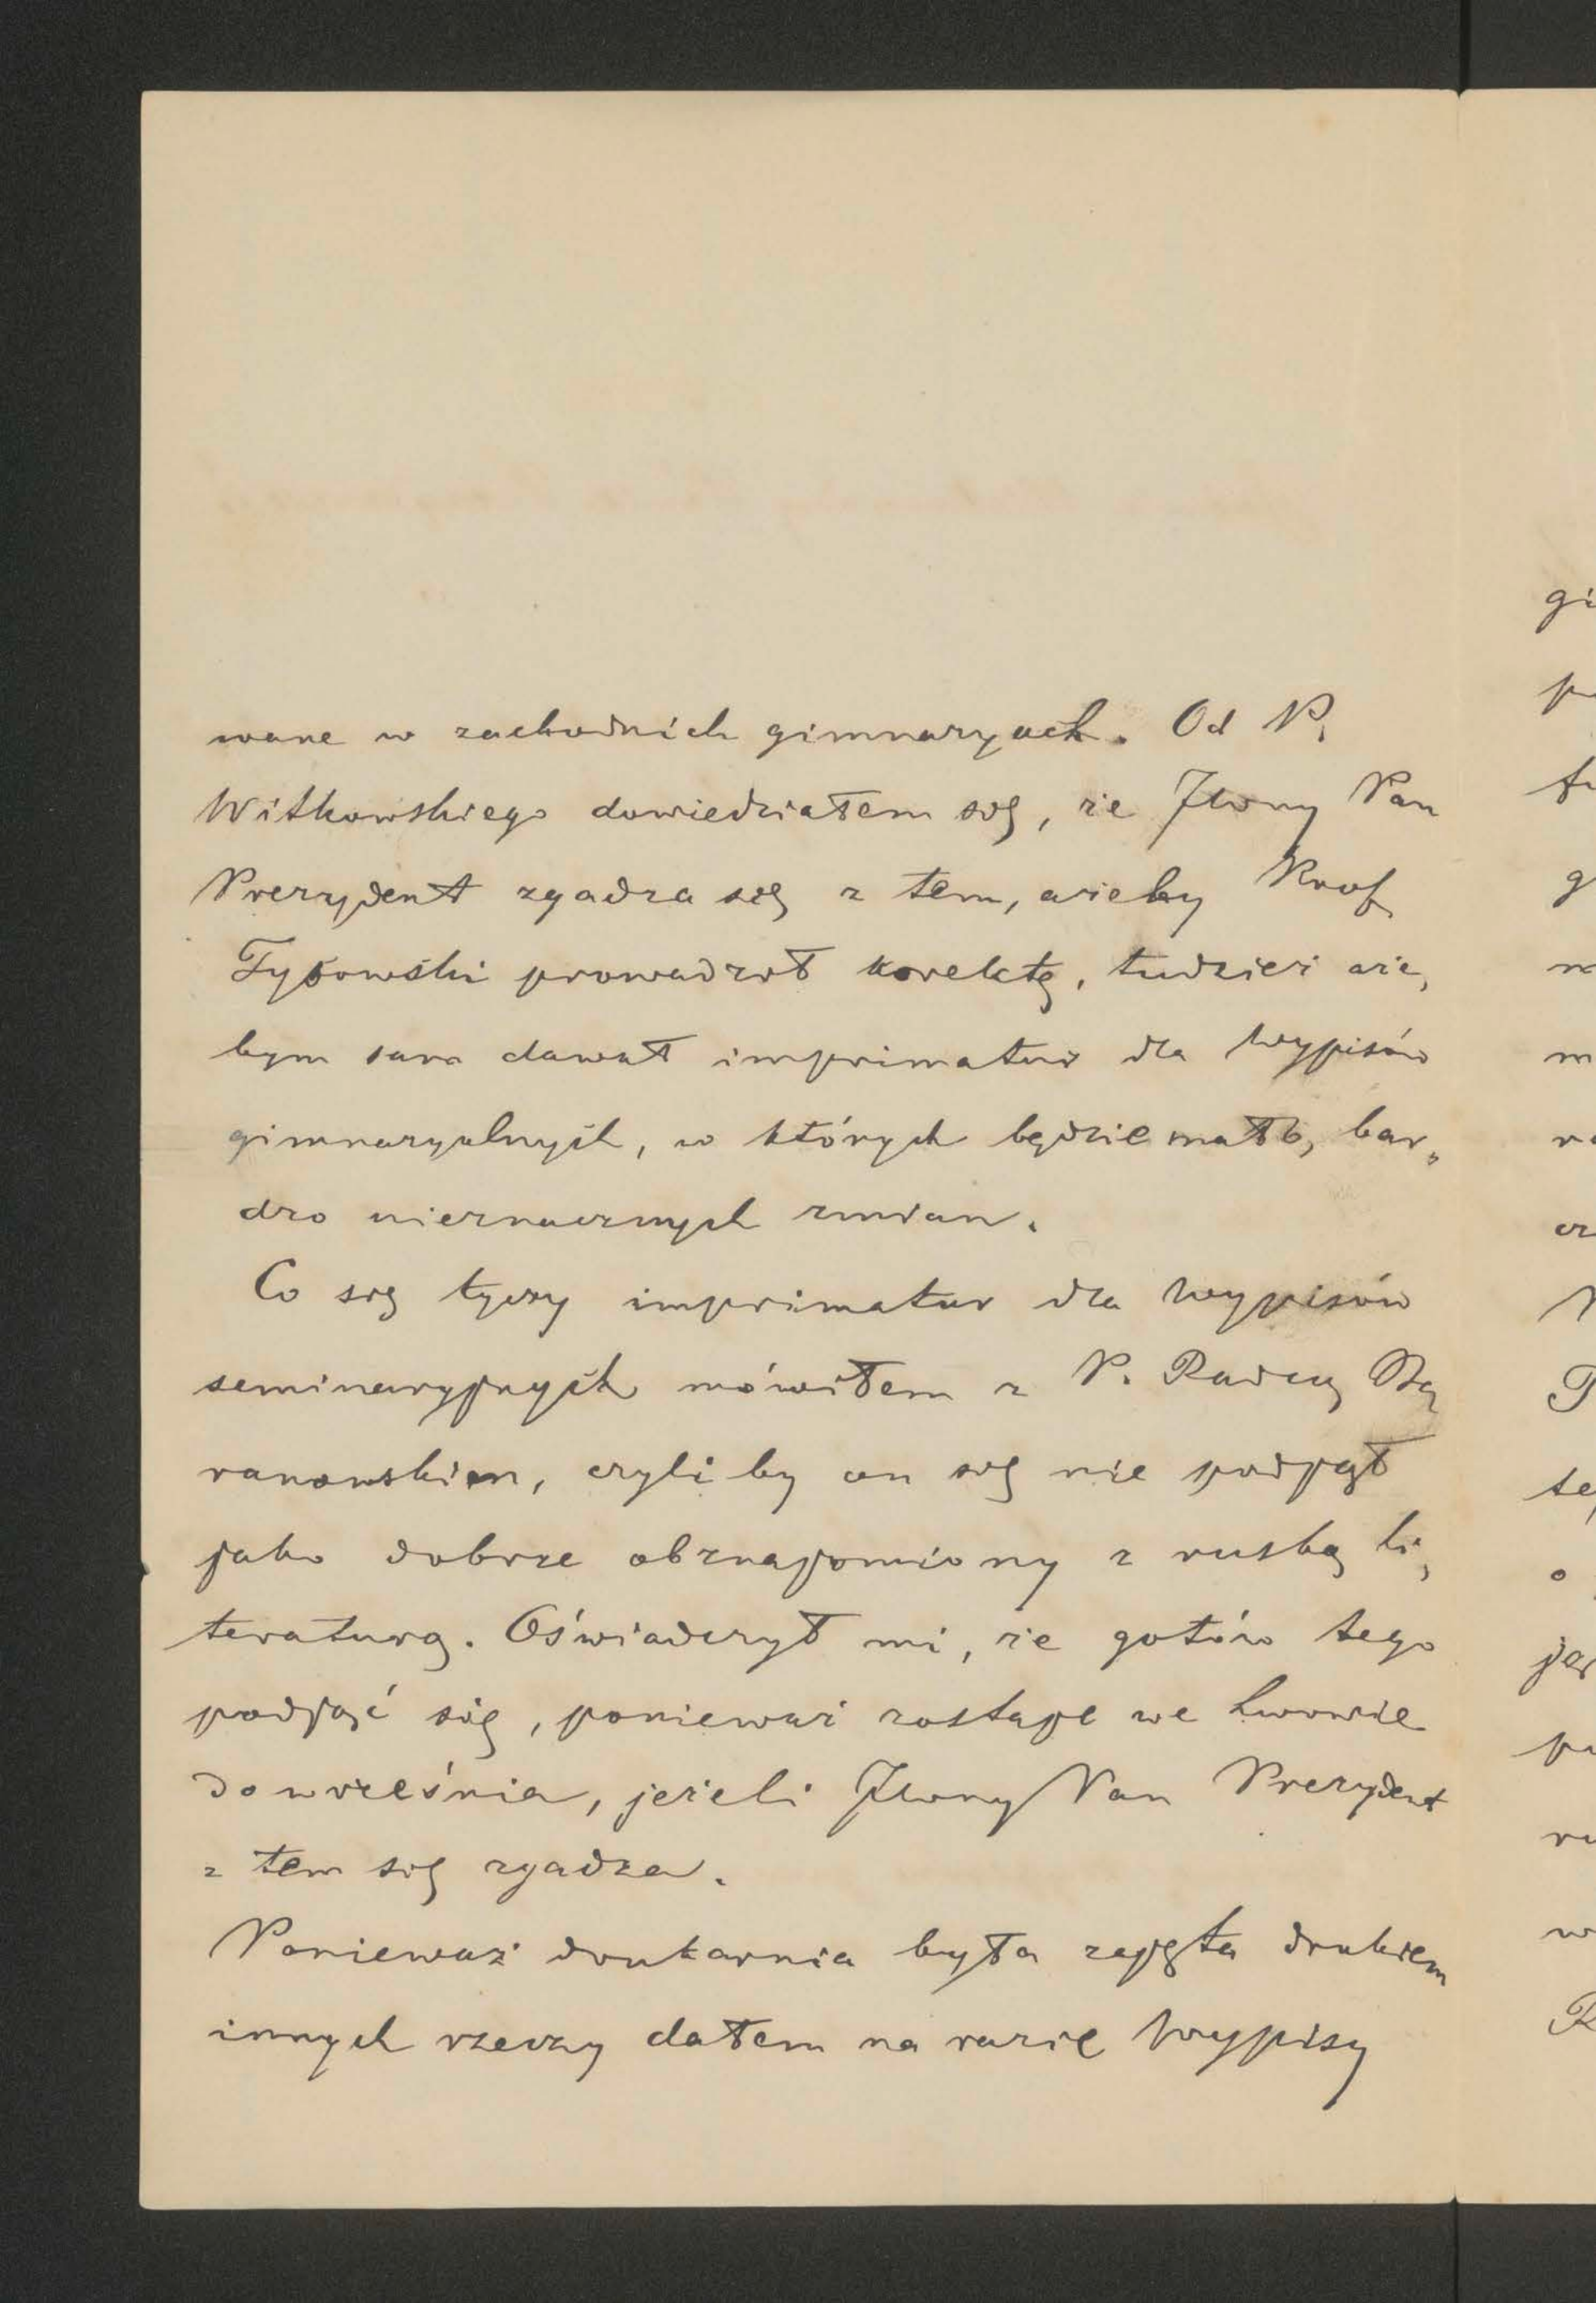 wane w zachodnich gimnazyach. Od P.
Witkowskiego dowiedziałem się, że JWny Pan
Prezydent zgadza się z tem, ażeby Prof
Tyssowski prowadził korektę, tudzież aże,
bym sam dawał imprimatur dla Wypisów
gimnazyalnych, w których będzie mało, bar„
dzo nieznacznych zmian.
Co się tyczy imprimatur dla Wypisów
seminaryjnych mówiłem z P. Radcą Ba
ranowskim, czyli by on się nie podjął
jako dobrze obznajomiony z ruską li,
teraturą. Oświadczył mi, że gotów tego
podjąć się, ponieważ zostaje we Lwowie
do września, jeżeli JWny Pan Prezydent
z tem się zgadza.
Ponieważ drukarnia była zajęta drukiem
innych rzeczy dałem na razie Wypisy
gi
p
g
m
r
P
te
o
ja
r
w